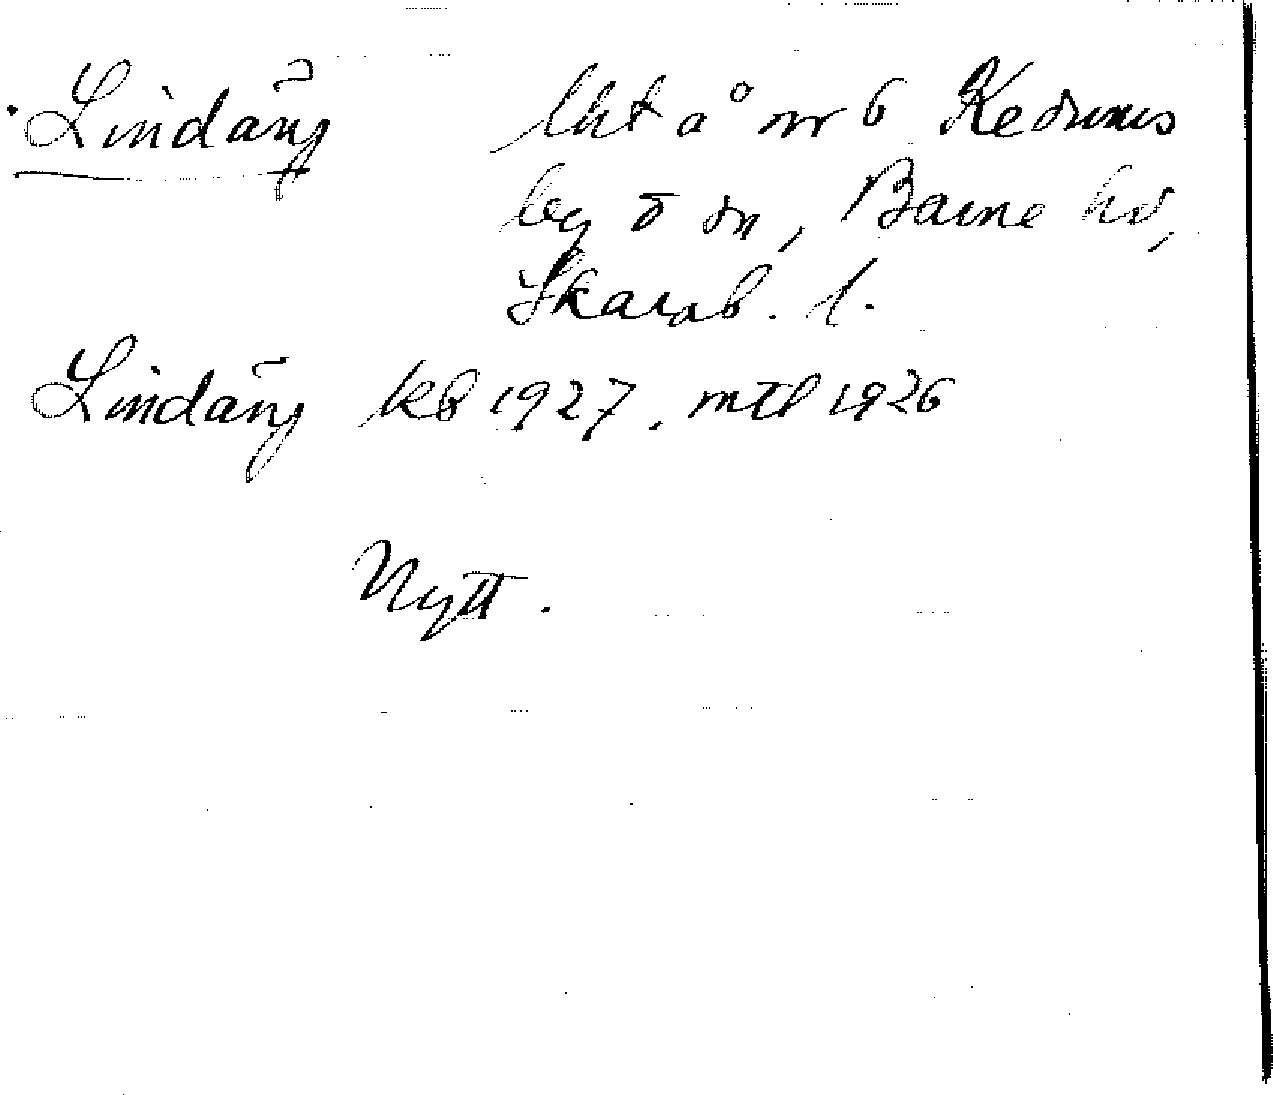 Lindäng lht å nr 6 Kedums
by o sn, Barne hd,
Skarab. l.
Lindäng kb 1927, mtl 1926
Nytt.